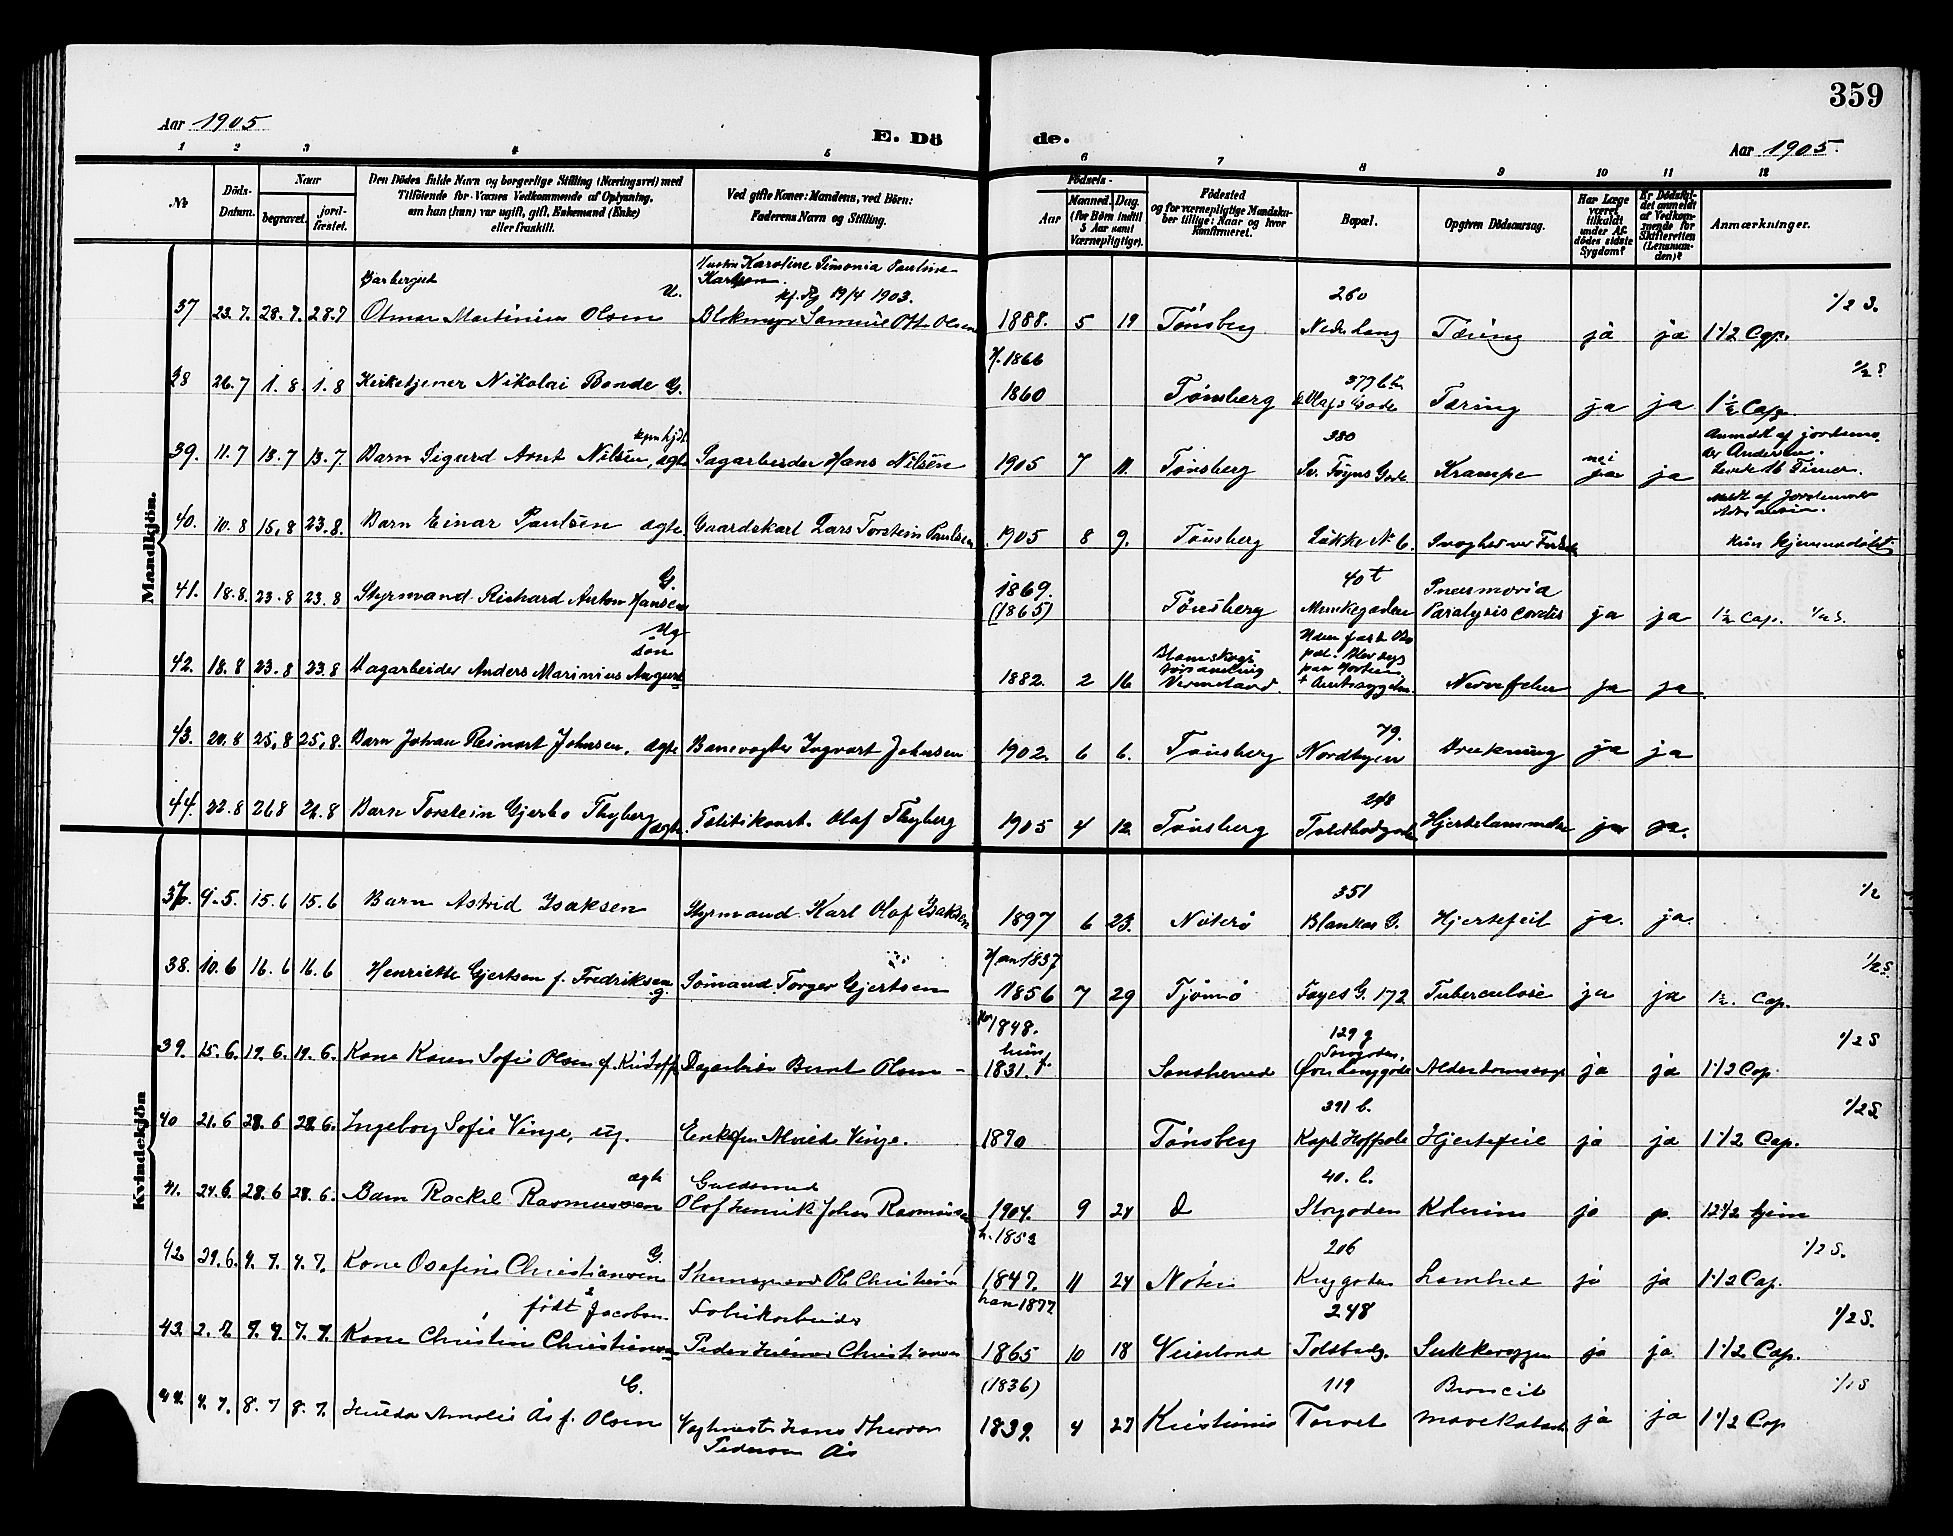 359
Aar 1905
E. Dö de.
Aar 1905.
1 2 3 4 5 6 7 8 9 10 11 12
No
Döds-Datum.
Naar
begravet.
jordfæstet.
Den Dödes fulde Navn og borgerlige Stilling (Næringsvei) med
Tilföiende for Voxnes Vedkommende af Oplysning,
om han (hun) var ugift, gift, Enkemand (Enke)
eller fraskilt.
Ved gifte Koner: Mandens, ved Börn:
Faderens Navn og Stilling.
Födsels-
Aar
Maaned. Dag.
(for Börn indtil
5 Aar samt
Værnepligtige).
Födested
og for værnepligtige Mandskaber tillige: Naar og hvor
konfirmeret.
Bopæl.
Opgiven Dödsaarsag.
Har Læge
været
tilkaldt
under Afdödes sidste
Sygdom?
Er Dödsfaldet anmeldt
af Vedkommende for
Skifteretten
(Lensmanden)?
Anmærkninger.
Mandkjön.
37 23.7. 28.7. 28.7 Otmar Martinius Olsen U. Karoline Simonia Pauline 19/4 1903. Samuel Otto Olsen 1888. 5 19 Tönsberg 260 Tæring ja ja 1 1/2 Cap. 1/2 S.
38 26.7 1.8 1.8 Kirketjener Nikolai Bonde G. 1866 1860 Tønsberg Olafs Gade Tæring ja ja 1 1/2 Cap.
39. 11.7 13.7 13.7. Barn Sigurd Arnt Nilsen, ægte Hans Nilsen 1905 7 11. Tønsberg 380 Sv. Føyns Gade Krampe nei ja Anmeldt af jordemo. Andersen. Levede 16 Timer.
40. 10.8 15,8 23.8. Barn Einar Paulsen ægte Gaardskarl Lars Torstein Paulsen 1905 8 9. Tønsberg Løkke N 6. kun hjemmedøbt
41. 18.8. 23.8 23.8 Styrmand Richard Anton Hansen G. 1869. (1865) Tønsberg 40 Munkegaden Paralysis cordis ja ja 1/2 Cap. 1/2 S.
42. 18.8 23.8 23.8 Dagarbeider Anders Marinius August son Ug 1882. 2 16 Vermeland ja ja
43. 20.8 25,8 25,8. Barn Johan Reinart Johnsen, ægte Banevogter Ingvart Johnsen 1902. 6 6. Tønsberg 79. Nordbyen Drukning ja ja
44. 22.8 26 8 26.8 Barn Torstein Gjerlo Thyberg ægte. Politikonst. Olaf Thyberg 1905 4 12 Tønsberg Toldbodgade ja ja.
Kvindekjön
37. 9.5. 15.6 15.6 Barn Astrid Isaksen Styrmand Karl Olaf Isaksen 1897 6 23. Nøterø 351 Hjertefeil ja. ja. 1/2
38. 10.6 16.6 16.6 Henriette Gjertsen f. Fredriksen g. Sømand Torger Gjertsen Han 1837 1856 7 29 Tjömö Fayes G. 172 Tuberculose ja ja 1/2 Cap. 1/2 S.
39. 15.6. 19.6. 19.6. Kone Karen Sofie Olsen Bernt Olsen 1848. hun 1831. 129 ja ja 1 1/2 Cap. 1/2 S
40 21.6 28.6 28.6. Ingeborg Sofie Vinje, ug. 1890 Tönsberg 391 b. Hjertefeil ja ja 1 1/2 Cap. 1/2 S.
41. 24.6. 28.6 28.6. Barn Rackel Rasmussen ægte Guldsmed Olaf Henrik Johan Rasmussen 1904. 9 24 40. b. Storgaden ja 12 1/2
42 29.6. 4.7. 4.7. Kone Osefine Christiansen G. Ole Christiansen 1852 1847. 11 24 206 ja ja 1 1/2 Cap. 1/2 S.
43. 2.7. 7.7. 7.7. Kone Christine Christiansen født Jacobsen Fabrikarbeider Peder Christiansen han 1877 1865 10 18 Veierland 248 Sukkersyge ja ja 1 1/2 Cap. 1/2 S.
44. 4.7. 8.7 8.7. Hulda Amalie Ås f. Olsen Hans Pedersen Ås (1836) 1839. 4 27 Kristiania 119 Torvet Broncit ja ja 1 1/2 Cap